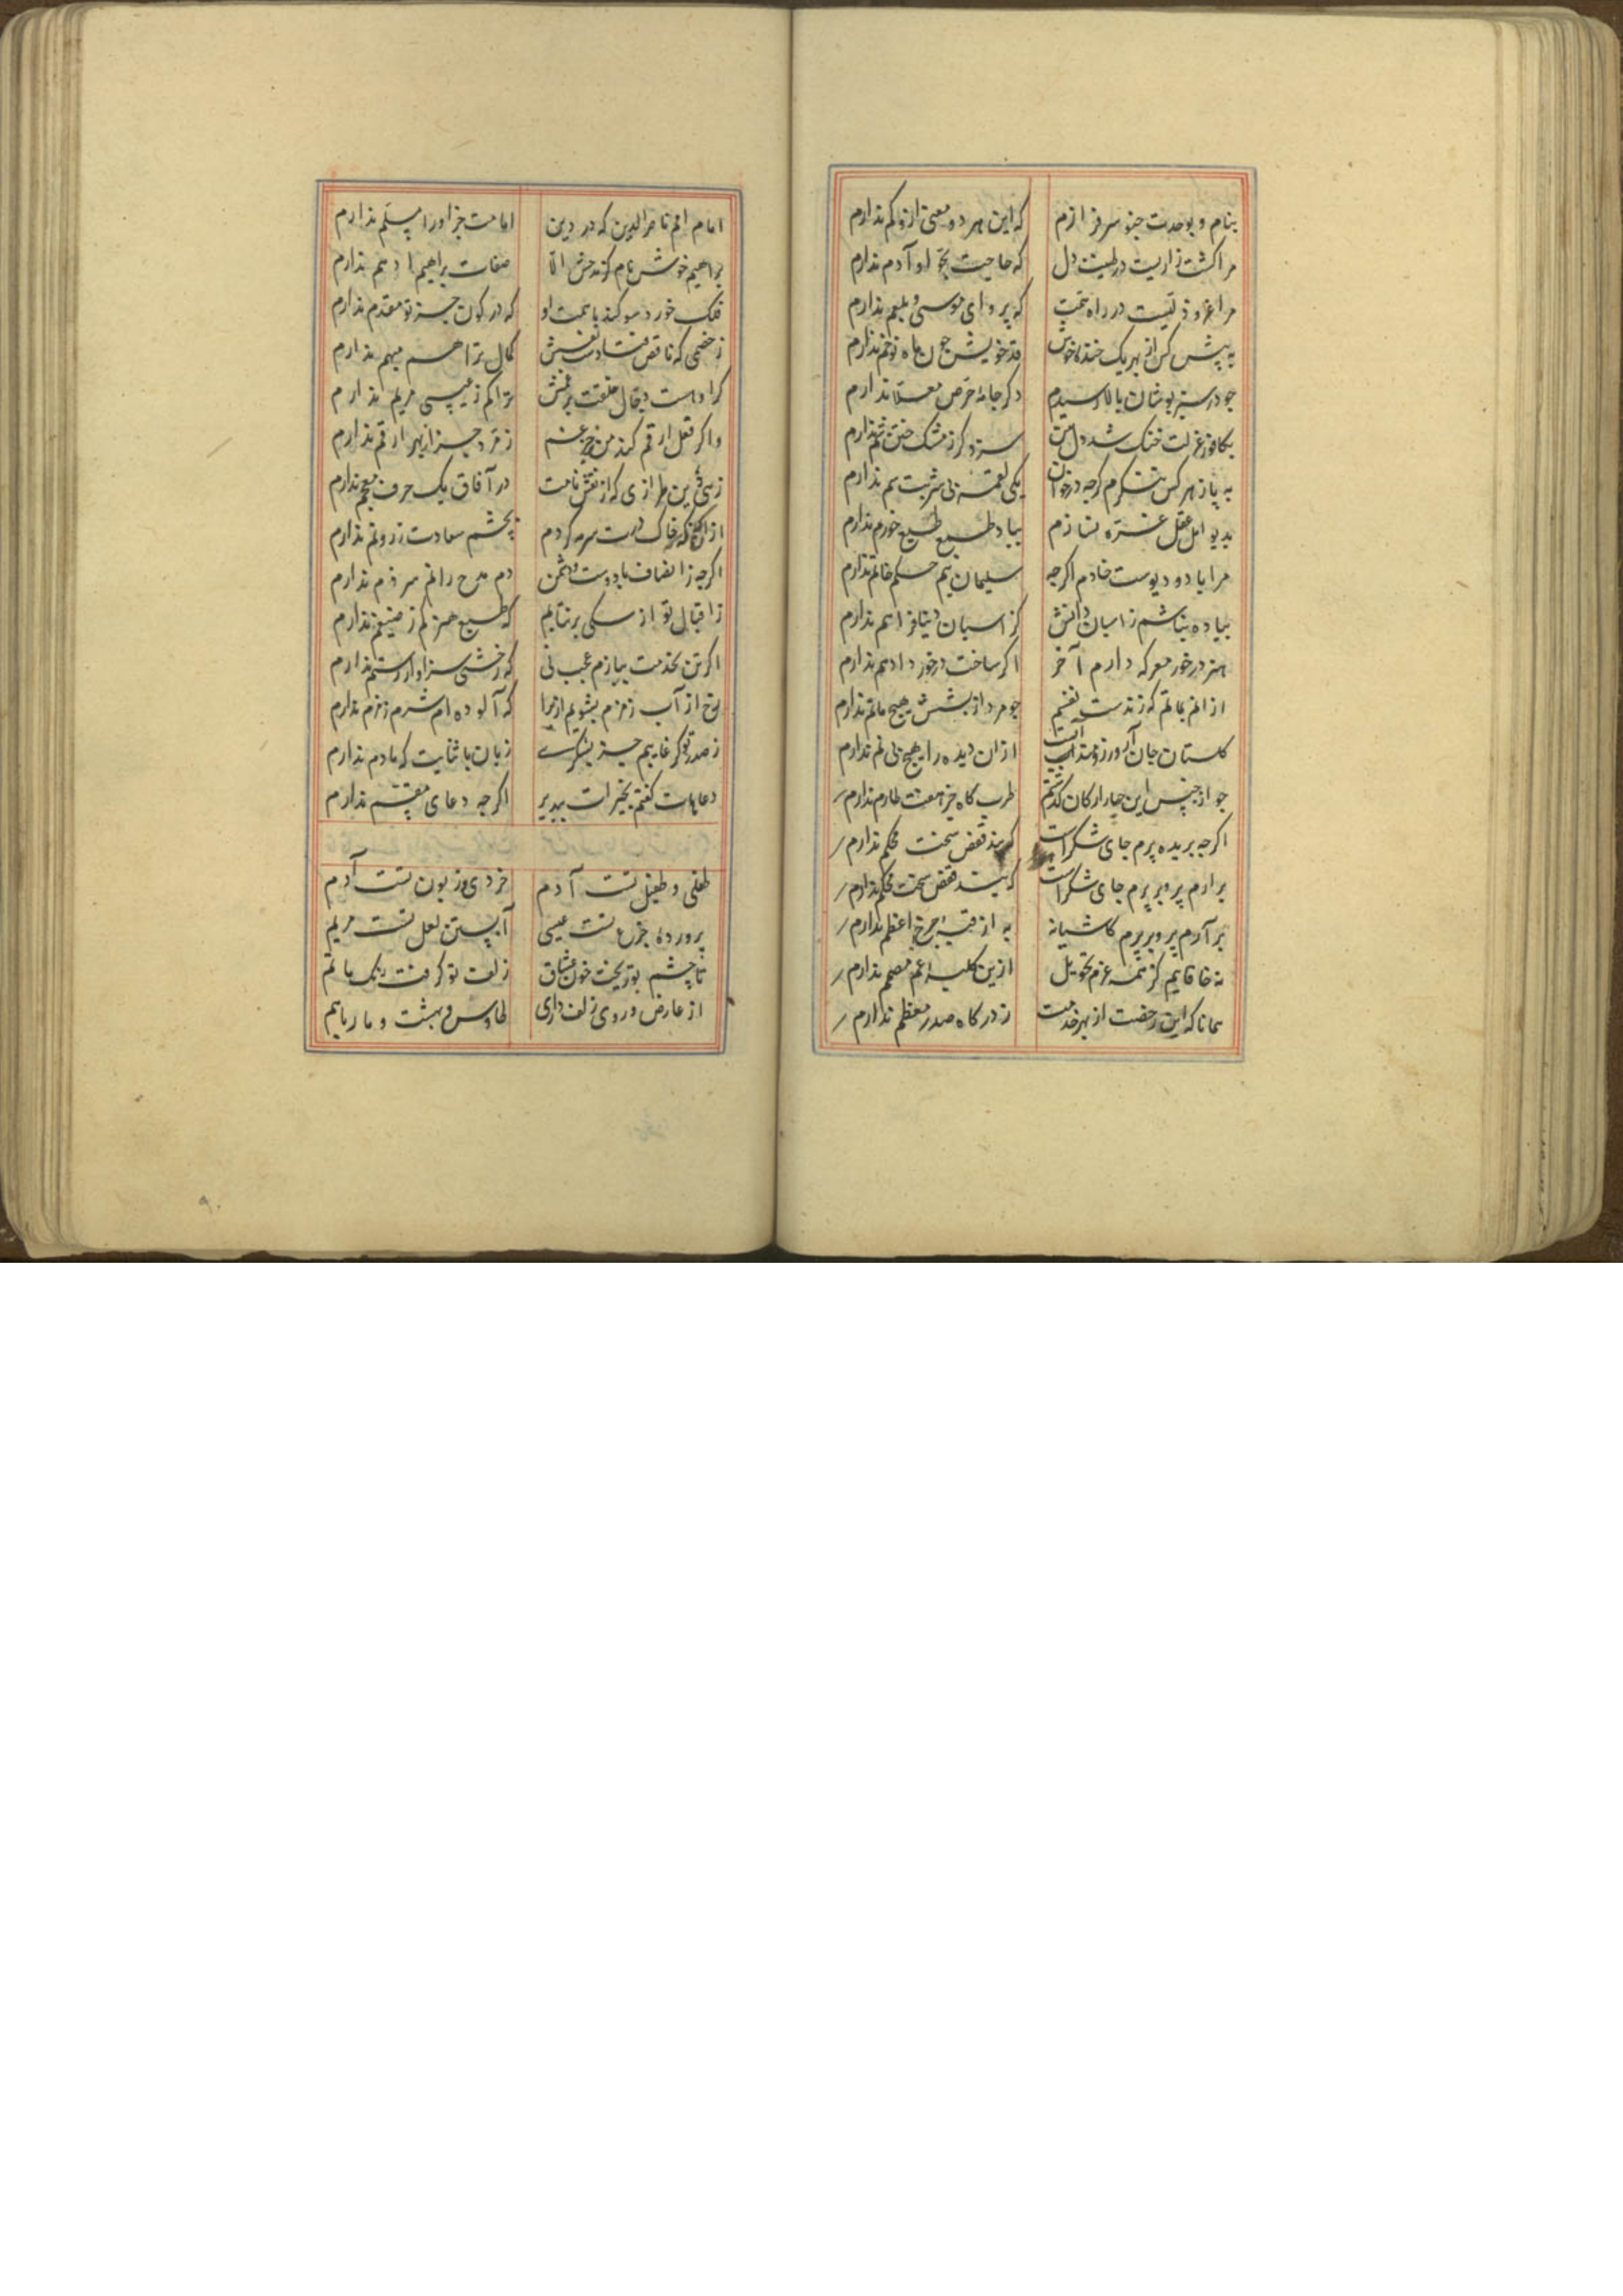 بنام و بوحدت چنو سرفرازم که این هر دو معنی ازو کم ندارم
مرا کشت زاریست در طینت دل که حاجت بحوا و آدم ندارم
مرا عز و ذلیست در راه همت که پروای موسی و بلعم ندارم
به پیش کس از بهر یک خنده خوش قد خویش چون ماه نو خم ندارم
چو در سبز پوشان بالا رسیدم دکر جامه حرص معلم ندارم
بکافور عزلت خنک شد دل من سزد کر ز مشک ختن شم ندارم
به یاز هر کس ننکرم کرچه در خوان یکی لقمه بی شربت سم ندارم
بدیو امل عقل غره نسازم بباد طمع طبع خرم ندارم
مرا باد و دیوست خادم اکرچه سلیمان نیم حکم خاتم ندارم
پیاده نباشم ز اسبان دانش کر اسبان دنیا فراهم ندارم
هنر درخور معرکه دارم آخر اکر ساخت درخورد ادهم ندارم
از انم بماتم که زندست نفسم چو مرد از پسش هیچ ماتم ندارم
کلستان جان آرزومند آبست از ان دیده را هیچ بی نم ندارم
چو از جنس این چار ارکان کذشتم طرب کاه جز هفت طارم ندارم
اکرچه بریده پرم جای شکرست که بند قفس سخت محکم ندارم
برارم پر و برپرم جای شکرست که بند قفس سخت محکم ندارم
برآرم پر و برپرم کاشیانه به از قبه چرخ اعظم ندارم
نه خاقانیم کز همه عزم تحویل ازین کلبه غم مصمم ندارم
همانا که این رخصت از بهر خدمت ز درکاه صدر معظم ندارم
امام امم ناصر الدین که در دین امامت جز او را مسلم ندارم
براهیم خوش نام کز مدحش الا صفات براهیم ادهم ندارم
فلک خورد سوکند با همت او که در کون جز تو مقدم ندارم
ز خصمی که ناقص فتادست نفسش کمال ترا هم مبهم ندارم
کرا داست دجال خلقت برغمش ترا کم ز عیسی مریم ندارم
و اکر فعل ارقم کند من چه غم زمرد جز از بهر ارقم ندارم
زهی دین طرازی که از نقش نامت در آفاق یک حرف معجم ندارم
از انکه که خاک درت سرمه کردم بچشم سعادت ز رو نم ندارم
اکرچه ز انصاف با دوست و دشمن دم مدح رانم سر ذم ندارم
ز اقبال تو از سکی برنتابم که طبع هنر کم ز ضیغم ندارم
اکر تن بخدمت نیارم عجب نی که رخشی سزاوار رستم ندارم
رخ از آب زمزم بشویم ازیرا که آلوده ام شرم زمزم ندارم
ز صدر تو کر غایبم جز بشکرت زبان با ثنایت که مادم ندارم
دعاهات کفتم بخیرات بپذیر اکرچه دعای مقسم ندارم
طفلی و طفیل تست آدم خردی و زبون تست آدم
پرورده جزع تست عیسی آبستن لعل تست مریم
تا چشم تو ریخت خون عشاق زلف تو کرفت رنک ماتم
از عارض و روی و زلف داری طاوس و بهشت و مار باهم